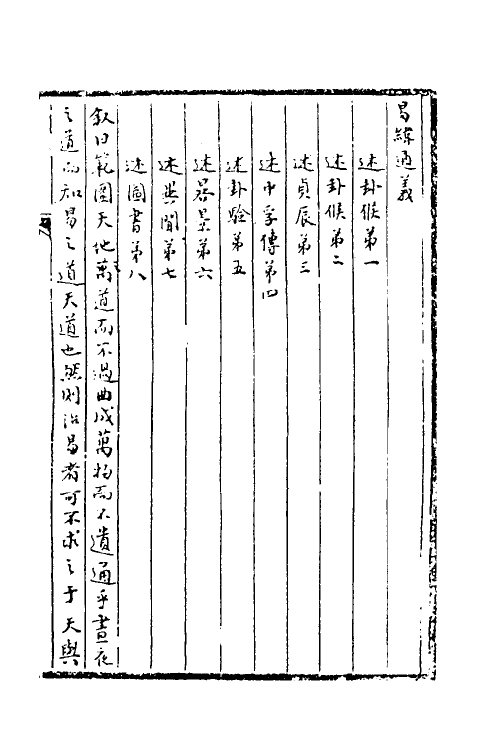 易緯通義
述卦候第一
述卦候第二
述貞辰第三
述中孚傳第四
述卦驗第五
述晷景第六
述與聞第七
述圖書第八
叙曰範圍天地萬道而不過曲成萬物而不遺通乎晝夜
之道而知易之道天道也然則治易者可不求之于天與